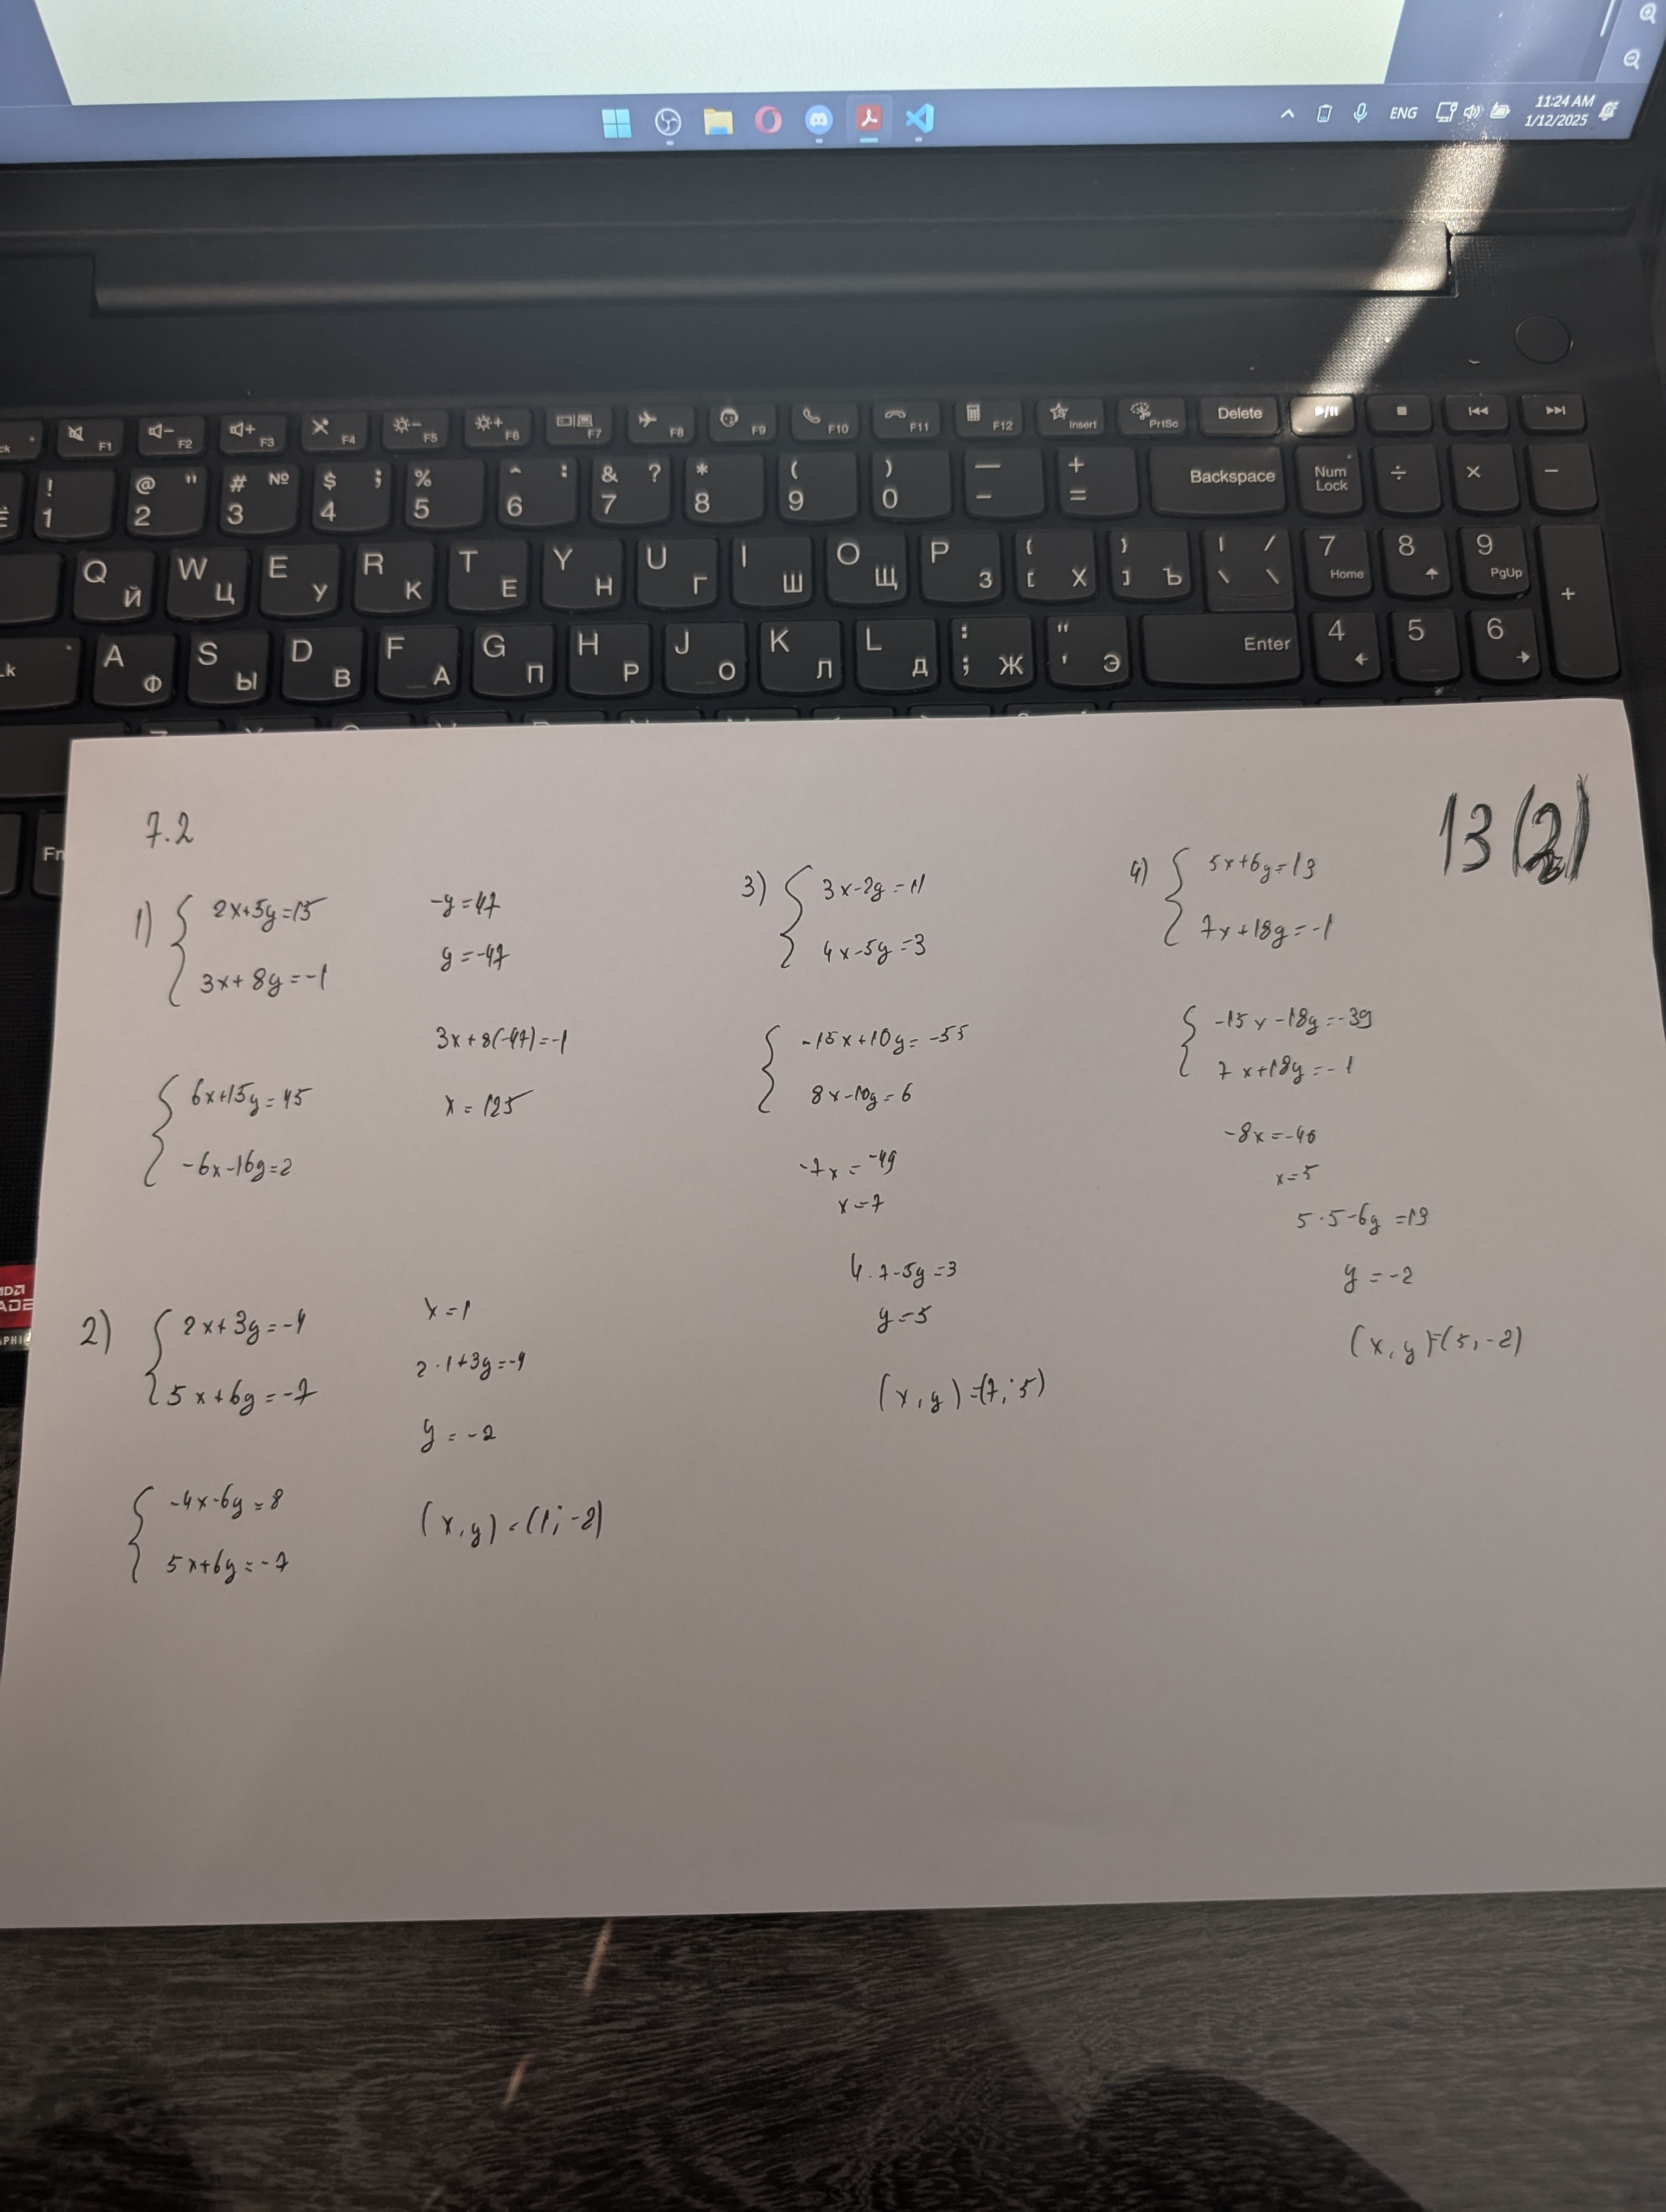 11:24 AM
ENG
1/12/2025
F1 F2 F3 F4 F5 F6 F7 F8 F9 F10 F11 F12 Insert PrtSc Delete
! 1 @ " 2 # № 3 $ ; 4 % 5 ^ : 6 & ? 7 * 8 ( 9 ) 0 — - + = Backspace Num Lock ÷ × −
Q Й W Ц E У R К T Е Y Н U Г I Ш O Щ P З { [ Х } ] Ъ | / \ \ 7 Home 8 9 PgUp +
A Ф S Ы D В F А G П H Р J О K Л L Д : ; Ж " ' Э Enter 4 5 6
Fn
7.2
13(2)
1) 2x+5y=15
3x+8y=-1
6x+15y=45
-6x-16y=2
-y=47
y=-47
3x+8(-47)=-1
x=125
2) 2x+3y=-4
5x+6y=-7
-4x-6y=8
5x+6y=-7
x=1
2·1+3y=-4
y=-2
(x,y)=(1;-2)
3) 3x-2y=11
4x-5y=3
-15x+10y=-55
8x-10y=6
-7x=-49
x=7
4·7-5y=3
y=5
(x,y)=(7;5)
4) 5x+6y=13
7x+18y=-1
-15x-18y=-39
7x+18y=-1
-8x=-40
x=5
5·5-6y=13
y=-2
(x,y)=(5;-2)